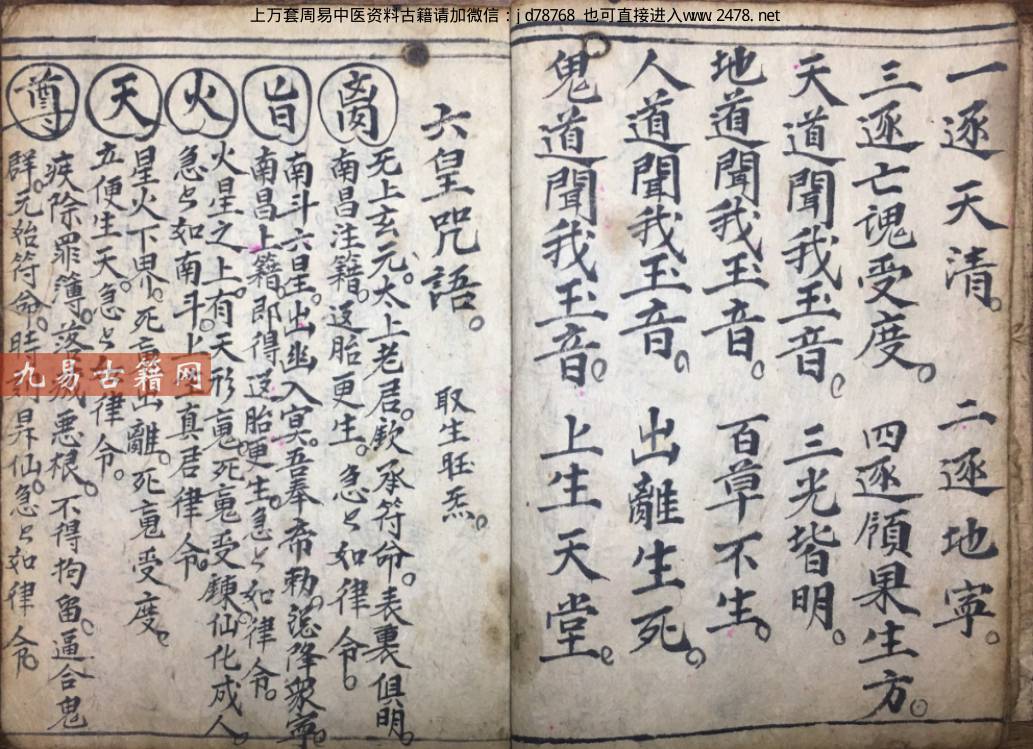 上万套周易中医资料古籍请加微信：jd78768 也可直接进入www.2478.net
一逐天清。二逐地寧。
三逐亡魂受度。四逐願果生方。
天道聞我玉音。三光皆明。
地道聞我玉音。百草不生。
人道聞我玉音。出離生死。
鬼道聞我玉音。上生天堂。
六皇咒語。取生旺炁。
离
无上玄元。太上老居。欽承符命。表裏俱明。
南昌注籍。返胎更生。急〻如律令。
旨
南斗六星。出幽入冥。吾奉帝勅。
南昌上籍。即得返胎更生。急〻如律令。
火
火星之上。有天形
死
受鍊仙化成人。
急〻如南斗。上
真君律令。
天
星火下界。死
出離。死
受度。
立便生天。急〻
律令。
尊
疾除罪簿。落滅惡根。不得拘留。逼合鬼
群。元始符命。時刻昇仙。急〻如律令。
九易古籍网